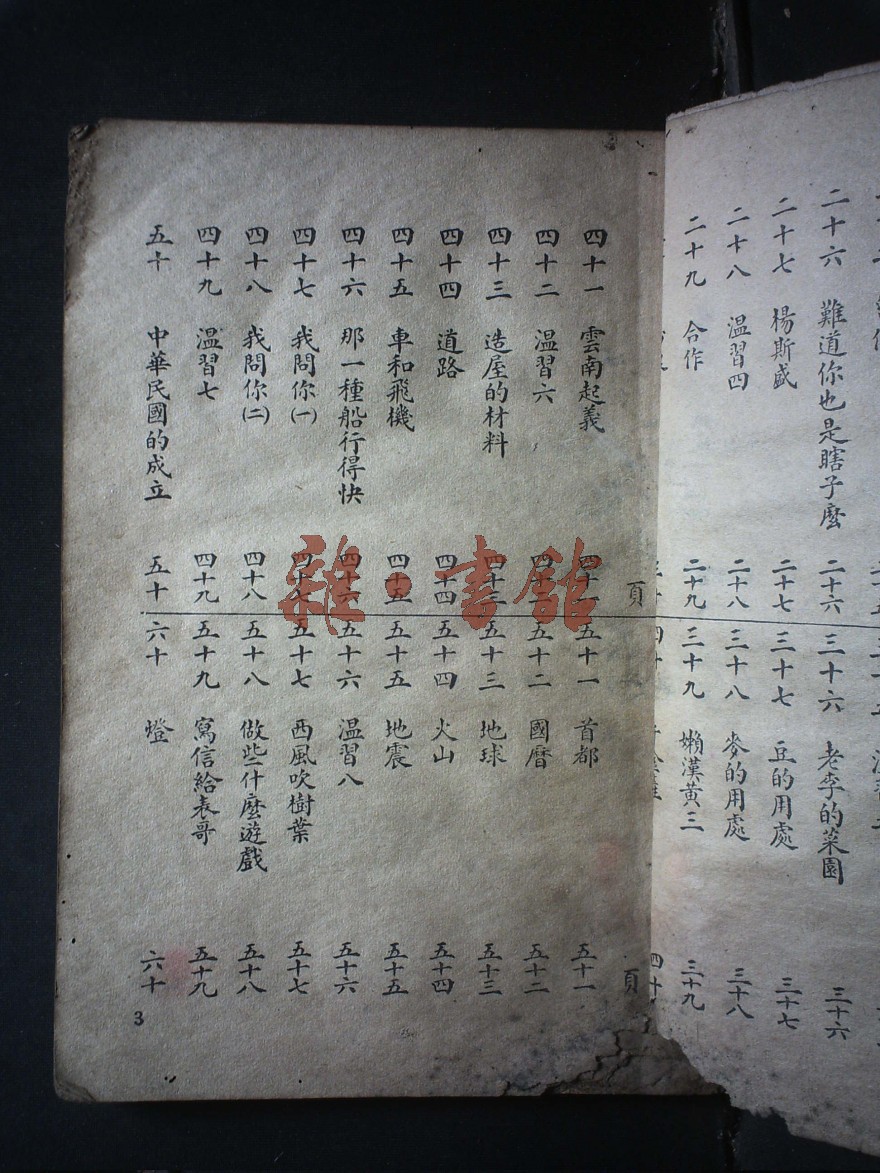 二十六 難道你也是瞎子麼 二十六
二十七 楊斯盛 二十七
二十八 温習四 二十八
二十九 合作 二十九
三十六 老李的菜園 三十六
三十七 豆的用處 三十七
三十八 麥的用處 三十八
三十九 嬾漢黃三 三十九
頁
四十一 雲南起義 四十一
四十二 温習六 四十二
四十三 造屋的材料 四十三
四十四 道路 四十四
四十五 車和飛機 四十五
四十六 那一種船行得快 四十六
四十七 我問你(一) 四十七
四十八 我問你(二) 四十八
四十九 温習七 四十九
五十 中華民國的成立 五十
頁
五十一 首都 五十一
五十二 國曆 五十二
五十三 地球 五十三
五十四 火山 五十四
五十五 地震 五十五
五十六 温習八 五十六
五十七 西風吹樹葉 五十七
五十八 做些什麼遊戲 五十八
五十九 寫信給表哥 五十九
六十 燈 六十
3
雜·書館